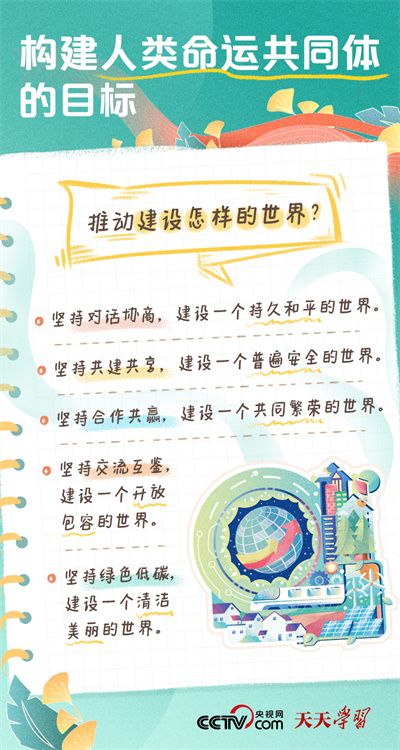 构建人类命运共同体
的目标
推动建设怎样的世界？
坚持对话协商，建设一个持久和平的世界。
坚持共建共享，建设一个普遍安全的世界。
坚持合作共赢，建设一个共同繁荣的世界。
坚持交流互鉴，
建设一个开放
包容的世界。
坚持绿色低碳，
建设一个清洁
美丽的世界。
CCTV.com 央视网 天天学習